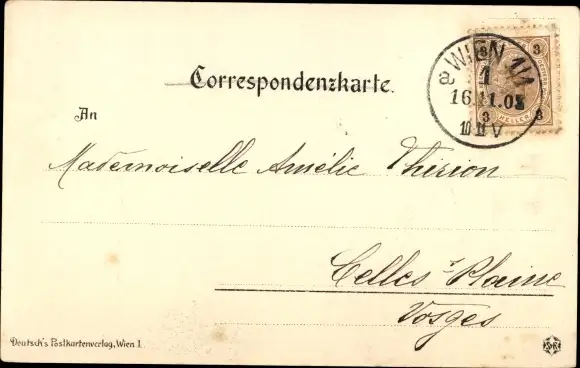 Correspondenzkarte.
WIEN 1/1
1
a
16.11.05
10 11 V
3 3
HELLER
3 3
An
Mademoiselle Amélie Thirion
Celles s/ Plaine
Vosges
Deutsch's Postkartenverlag, Wien I.